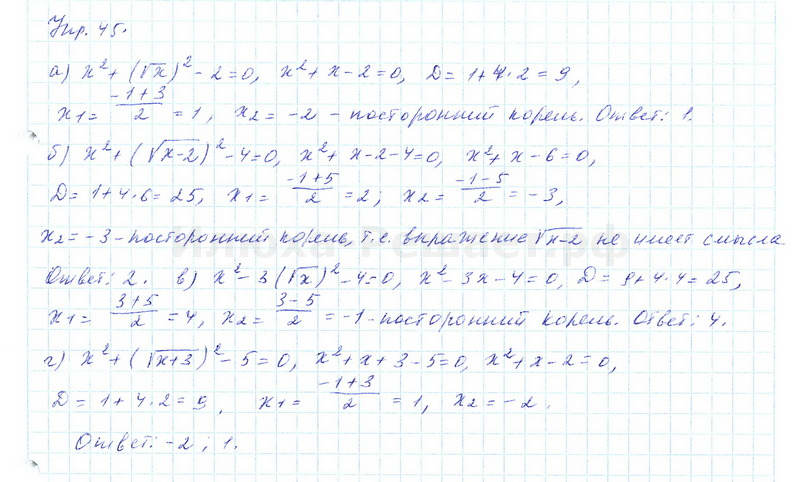 Упр. 45.
а) x² + (√x)² - 2 = 0, x² + x - 2 = 0, D = 1 + 4 · 2 = 9,
x1 = (-1+3)/2 = 1, x2 = -2 - посторонний корень. Ответ: 1.
б) x² + (√x-2)² - 4 = 0, x² + x - 2 - 4 = 0, x² + x - 6 = 0,
D = 1 + 4 · 6 = 25, x1 = (-1+5)/2 = 2; x2 = (-1-5)/2 = -3,
x2 = -3 - посторонний корень, т.е. выражение √x-2 не имеет смысла
Ответ: 2. в) x² - 3(√x)² - 4 = 0, x² - 3x - 4 = 0, D = 9 + 4 · 4 = 25,
x1 = (3+5)/2 = 4, x2 = (3-5)/2 = -1 - посторонний корень. Ответ: 4.
г) x² + (√x+3)² - 5 = 0, x² + x + 3 - 5 = 0, x² + x - 2 = 0,
D = 1 + 4 · 2 = 9, x1 = (-1+3)/2 = 1, x2 = -2.
Ответ: -2; 1.